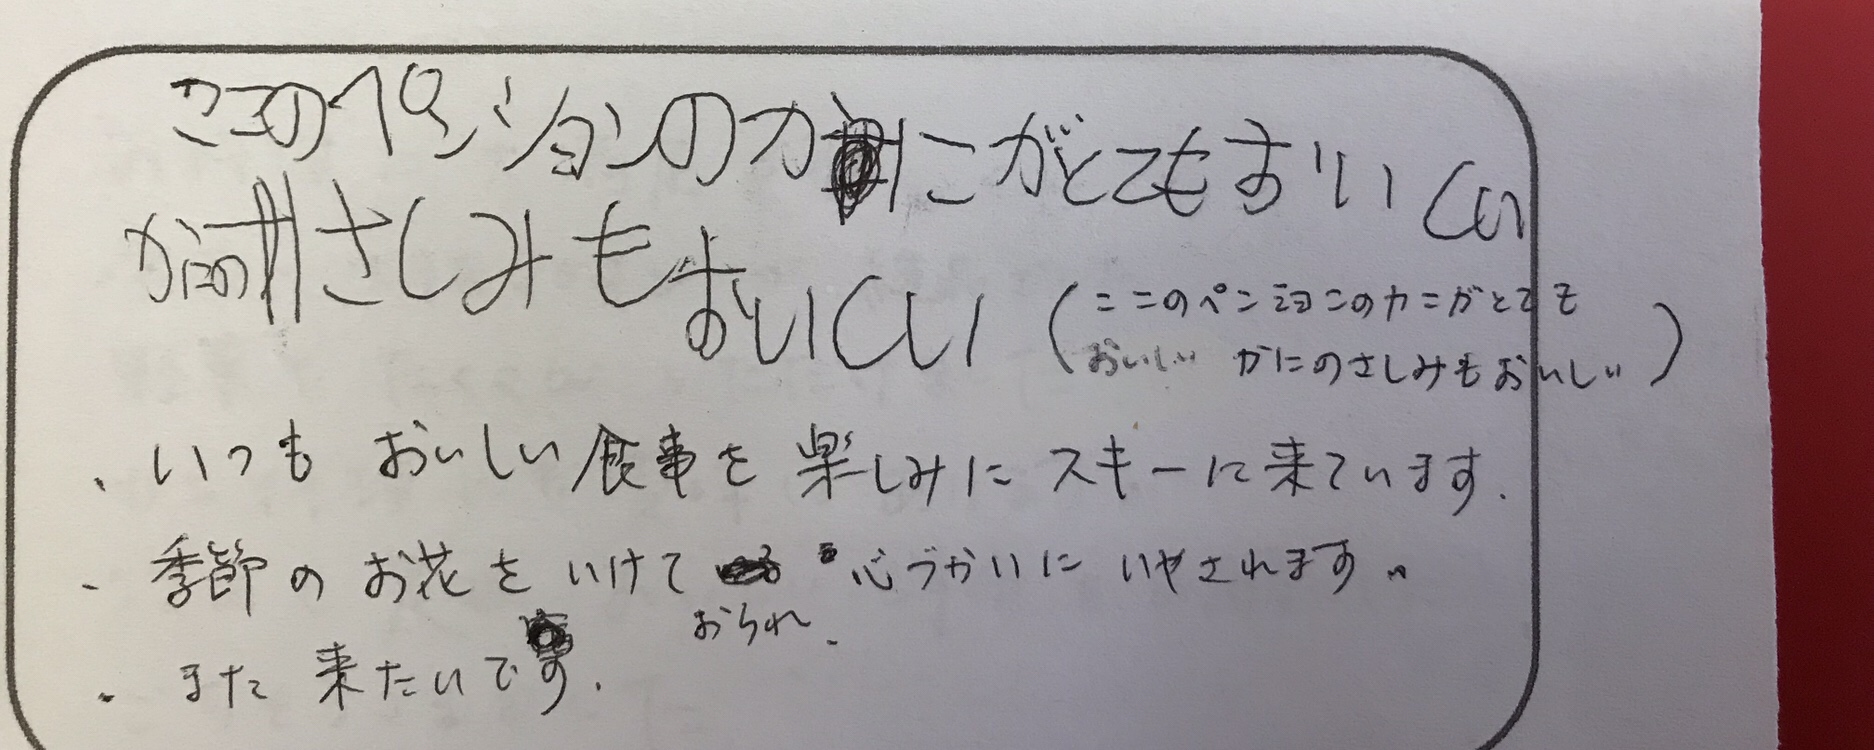 ここのペンションのカにがとてもおいしい
かにのさしみもおいしい
(ここのペンションのカニがとても
おいしい かにのさしみもおいしい)
、いつも おいしい食事を楽しみにスキーに来ています.
、季節のお花をいけて 心づかいに いやされます。
おられ、
、また来たいです.